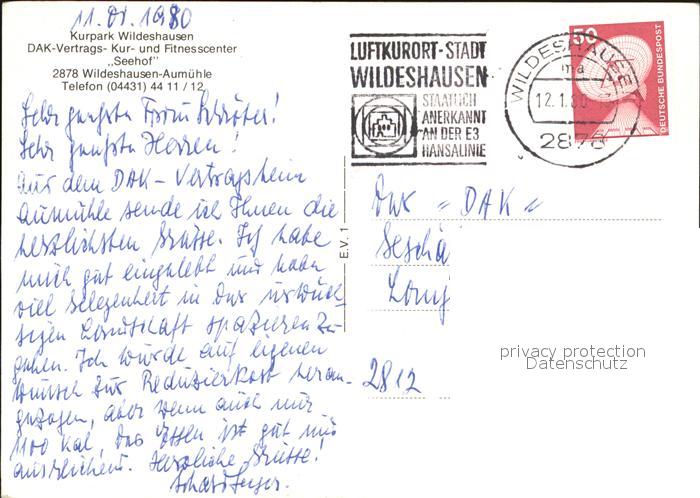 11.01.1980
Kurpark Wildeshausen
DAK-Vertrags- Kur- und Fitnesscenter
„Seehof"
2878 Wildeshausen-Aumühle
Telefon (04431) 44 11 / 12
Sehr geehrte Frau Schröter!
Sehr geehrte Herren!
Aus dem DAK-Vertragsheim
Aumühle sende ich Ihnen die
herzlichsten Grüsse. Ich habe
mich gut eingelebt und habe
viel Gelegenheit in der urwüch-
sigen Landschaft spazieren zu
gehen. Ich wurde auf eigenen
Wunsch zur Reduzierkost heran-
gezogen, aber wenn auch nur
1100 Kal, das Essen ist gut und
ausreichend. Herzliche Grüsse!
E.V. 1
LUFTKURORT-STADT
WILDESHAUSEN
STAATLICH
ANERKANNT
AN DER E3
HANSALINIE
WILDESHAUSEN
ma
12.1.80
2878
50
DEUTSCHE BUNDESPOST
"DAK"
Geschä
2812
privacy protection
Datenschutz